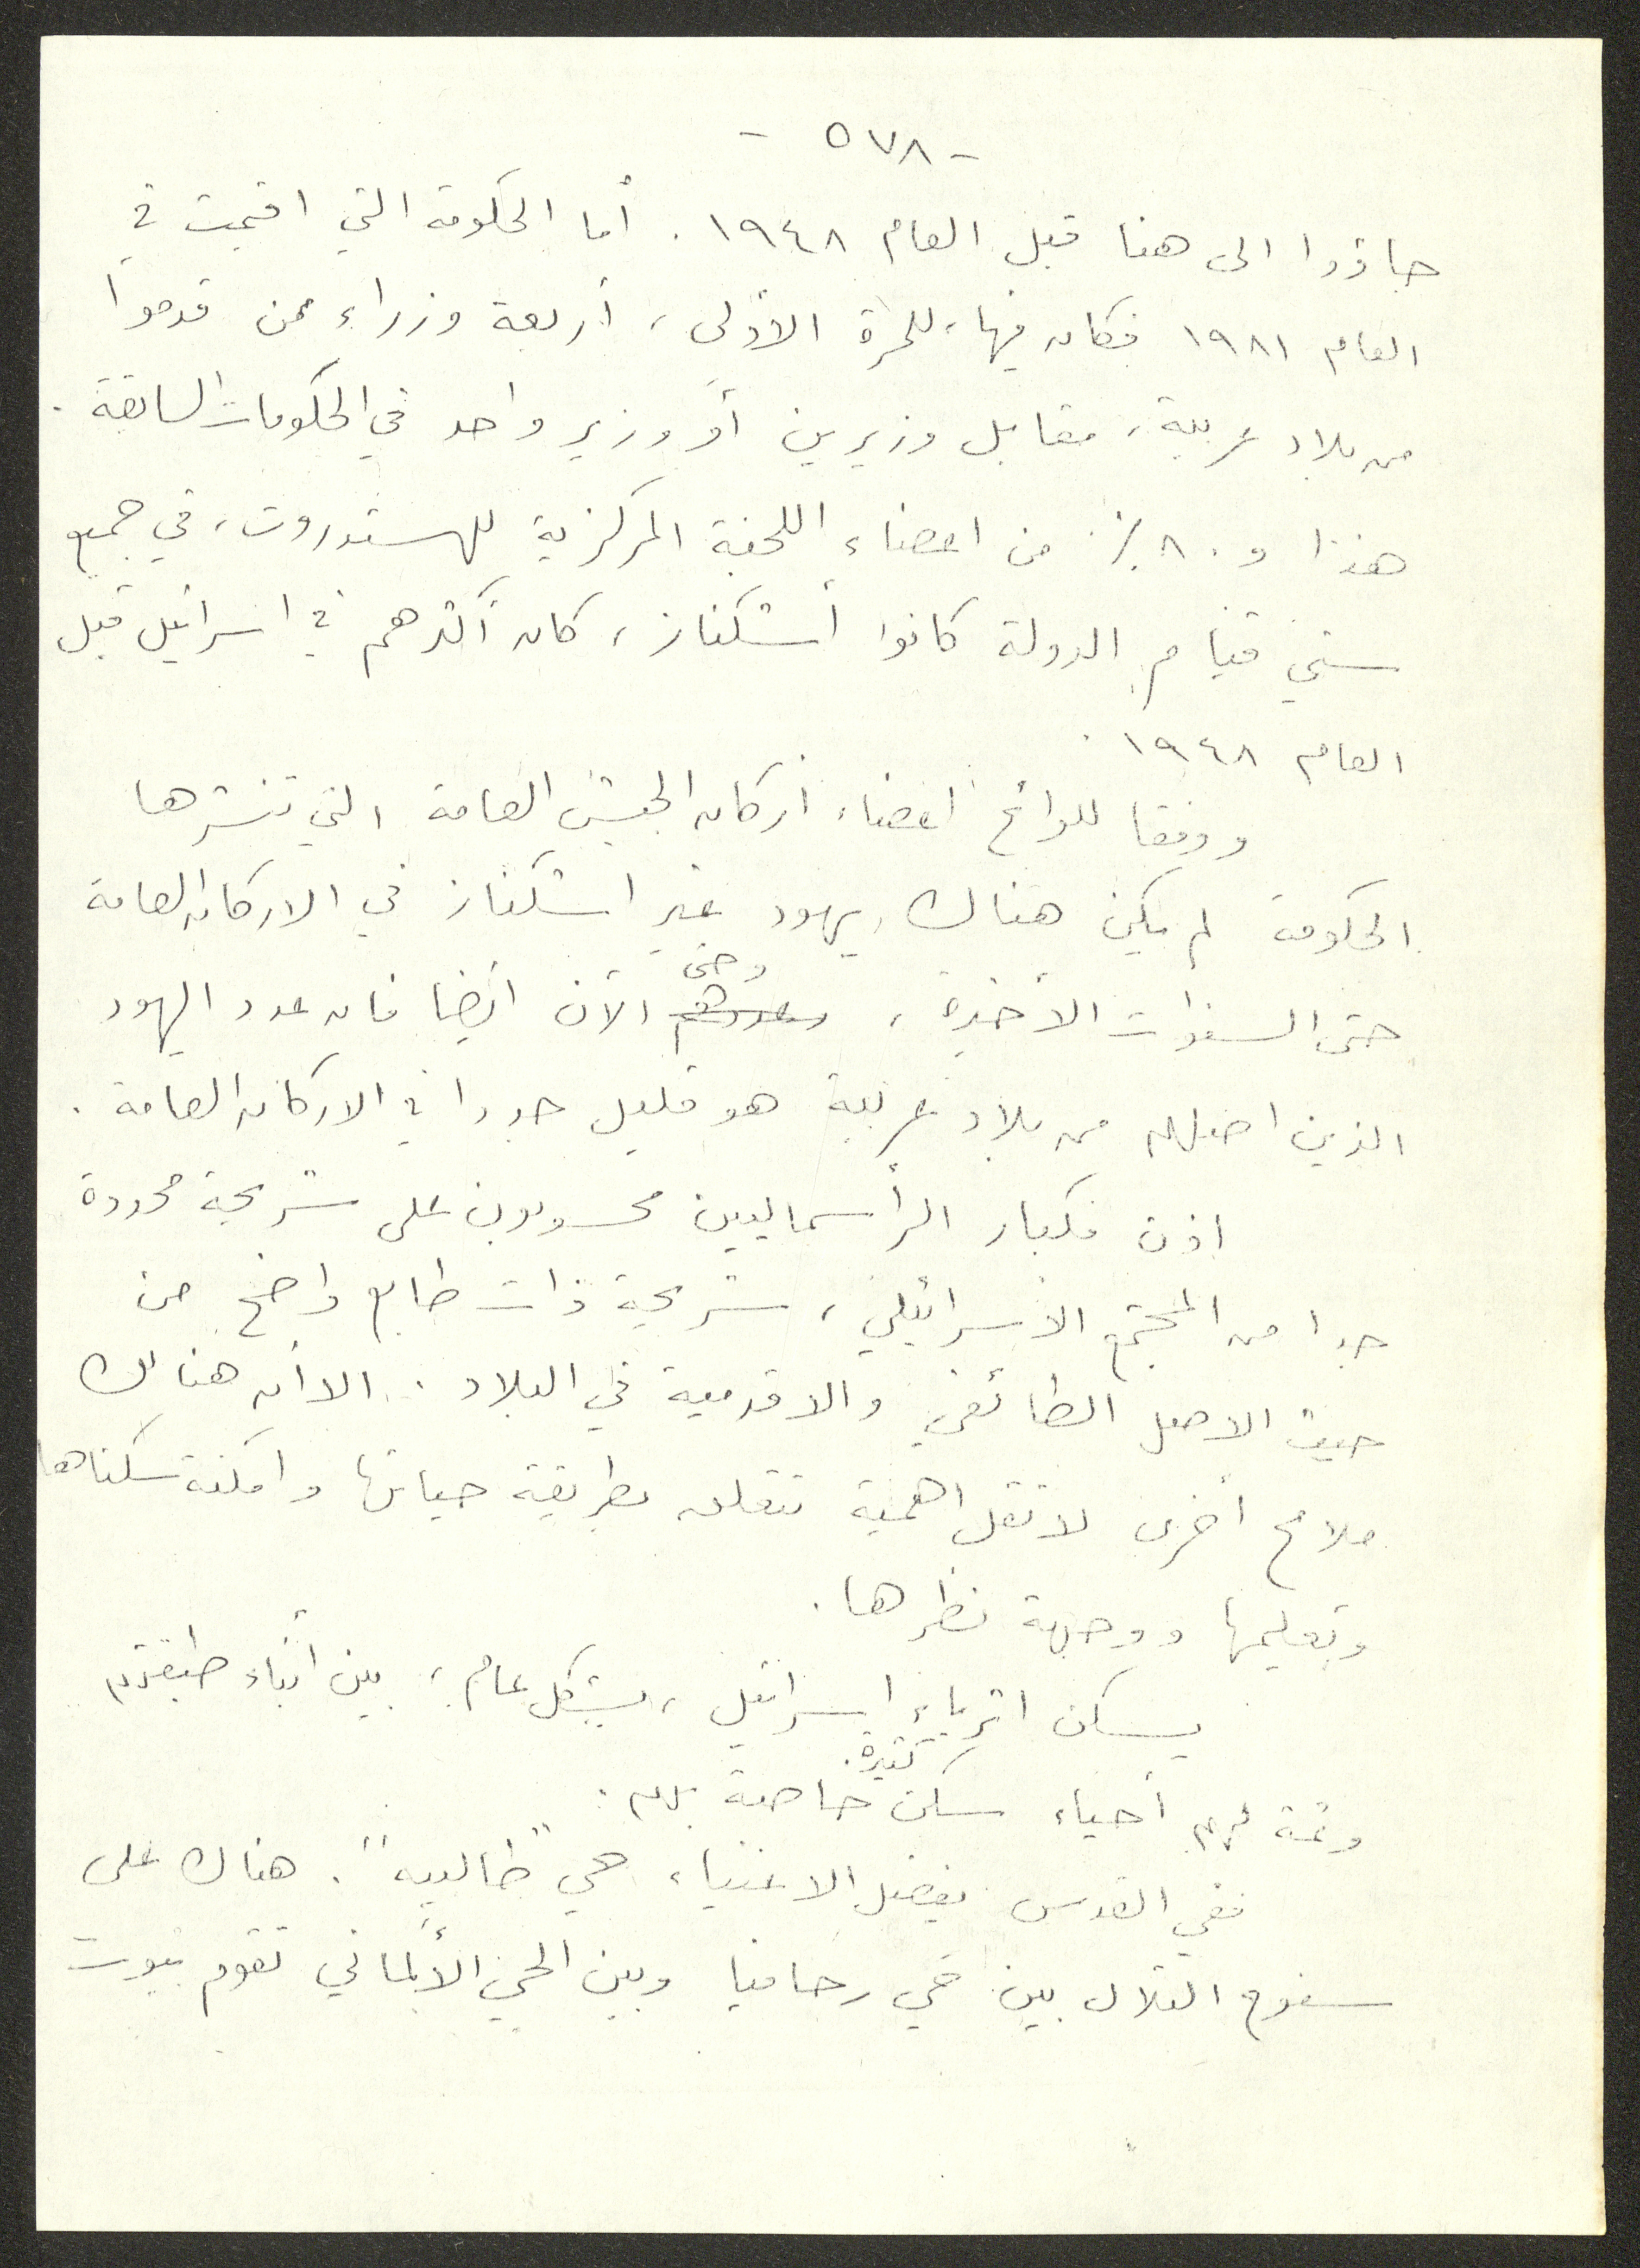 - ٥٧٨ -
جاؤوا الى هنا قبل العام ١٩٤٨. أما الحكومة التي اقيمت في
العام ١٩٨١ فكان فيها، للمرة الأولى، أربعة وزراء ممن قدموا
من بلاد عربية، مقابل وزيرين أو وزير واحد في الحكومات السابقة.
هذا و ٨٠٪ من اعضاء اللجنة المركزية للهستدروت، في جميع
سني قيام الدولة كانوا أشكناز، كان أكثرهم في اسرائيل قبل
العام ١٩٤٨.
ووفقا للوائح اعضاء أركان الجيش العامة التي تنشرها
الحكومة لم يكن هناك يهود غير اشكناز في الاركان العامة
حتى السنوات الأخيرة، وحتى الآن أيضا فان عدد اليهود
الذين اصلهم من بلاد عربية هو قليل جدا في الاركان العامة.
اذن فكبار الرأسماليين محسوبون على شريحة محدودة
جدا من المجتمع الاسرائيلي، شريحة ذات طابع واضح من
حيث الاصل الطائفي والاقدمية في البلاد. الا أن هنالك
ملامح أخرى لا تقل اهمية تتعلق بطريقة حياتها وامكنة سكناها
وتعليمها ووجهة نظرها.
يسكن اثرياء اسرائيل، بشكل عام، بين أبناء طبقتهم
وثمة لهم أحياء سكن كثيرة خاصة بهم:
ففي القدس يفضل الاغنياء حي "طالبيه". هناك على
سفوح التلال بين حي رحافيا وبين الحي الألماني تقوم بيوت